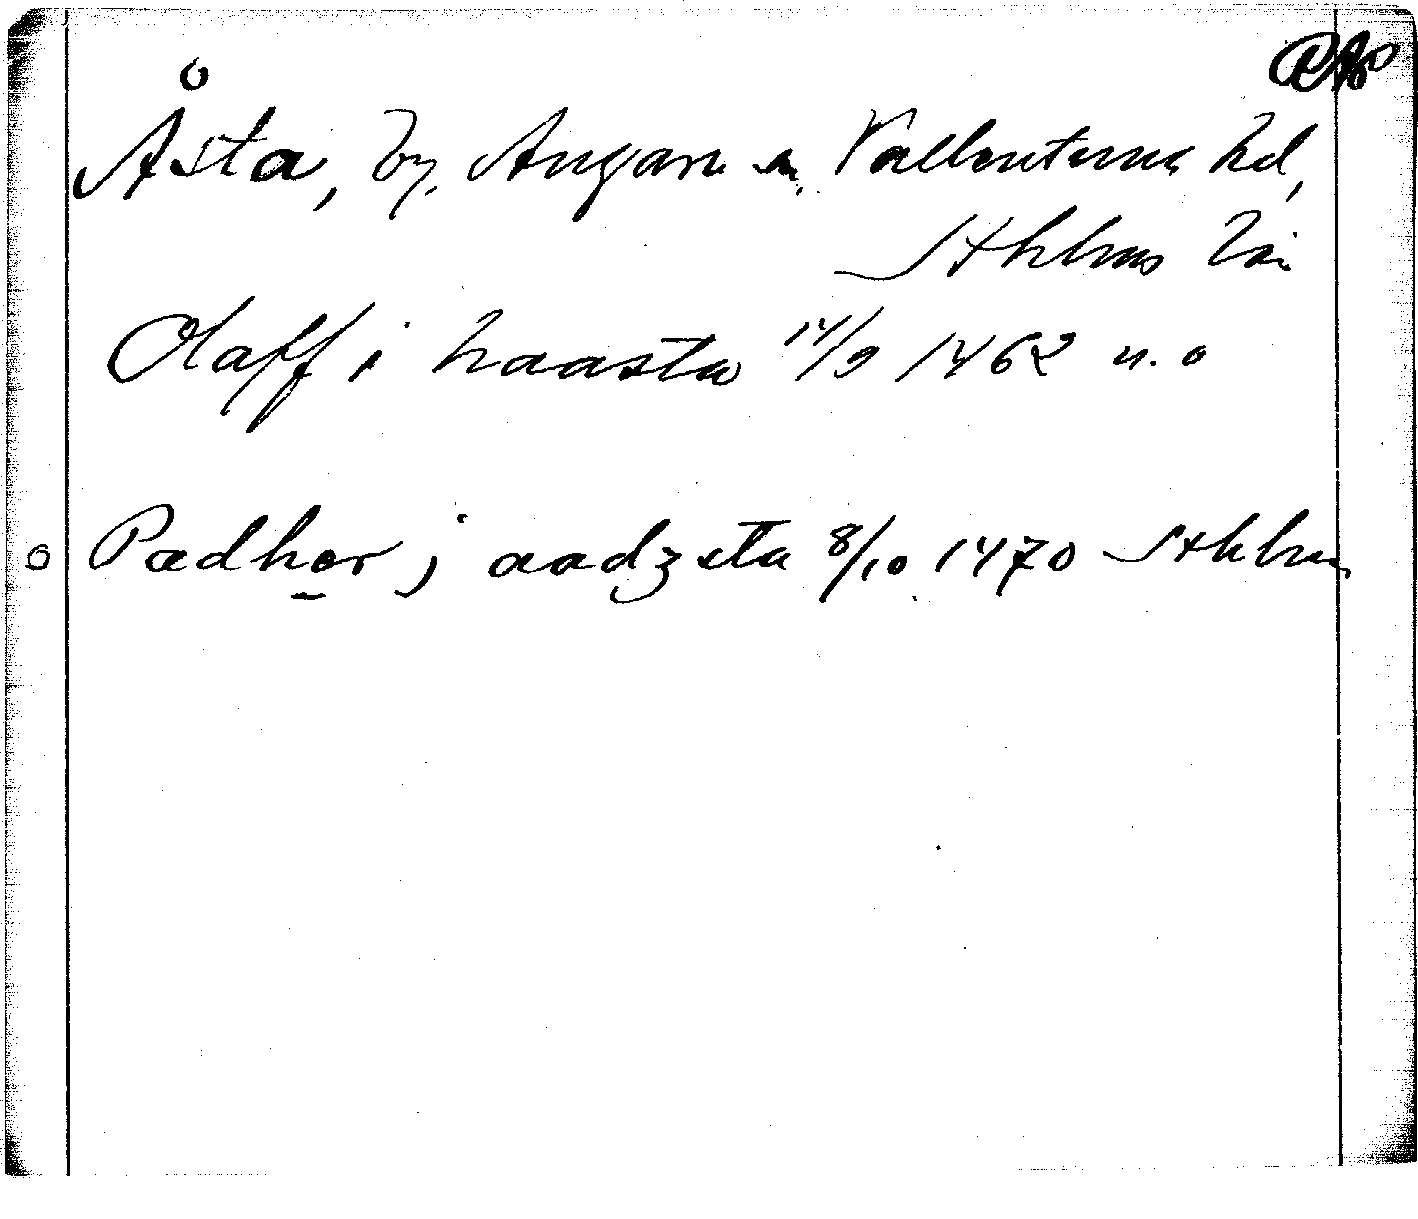 Åsta, by, Angarn sn, Vallentuna hd,
Sthlms län
Olaff i haasta 14/9 1462 u. o
Pædhær j aadzsta 8/10 1470 Sthlm